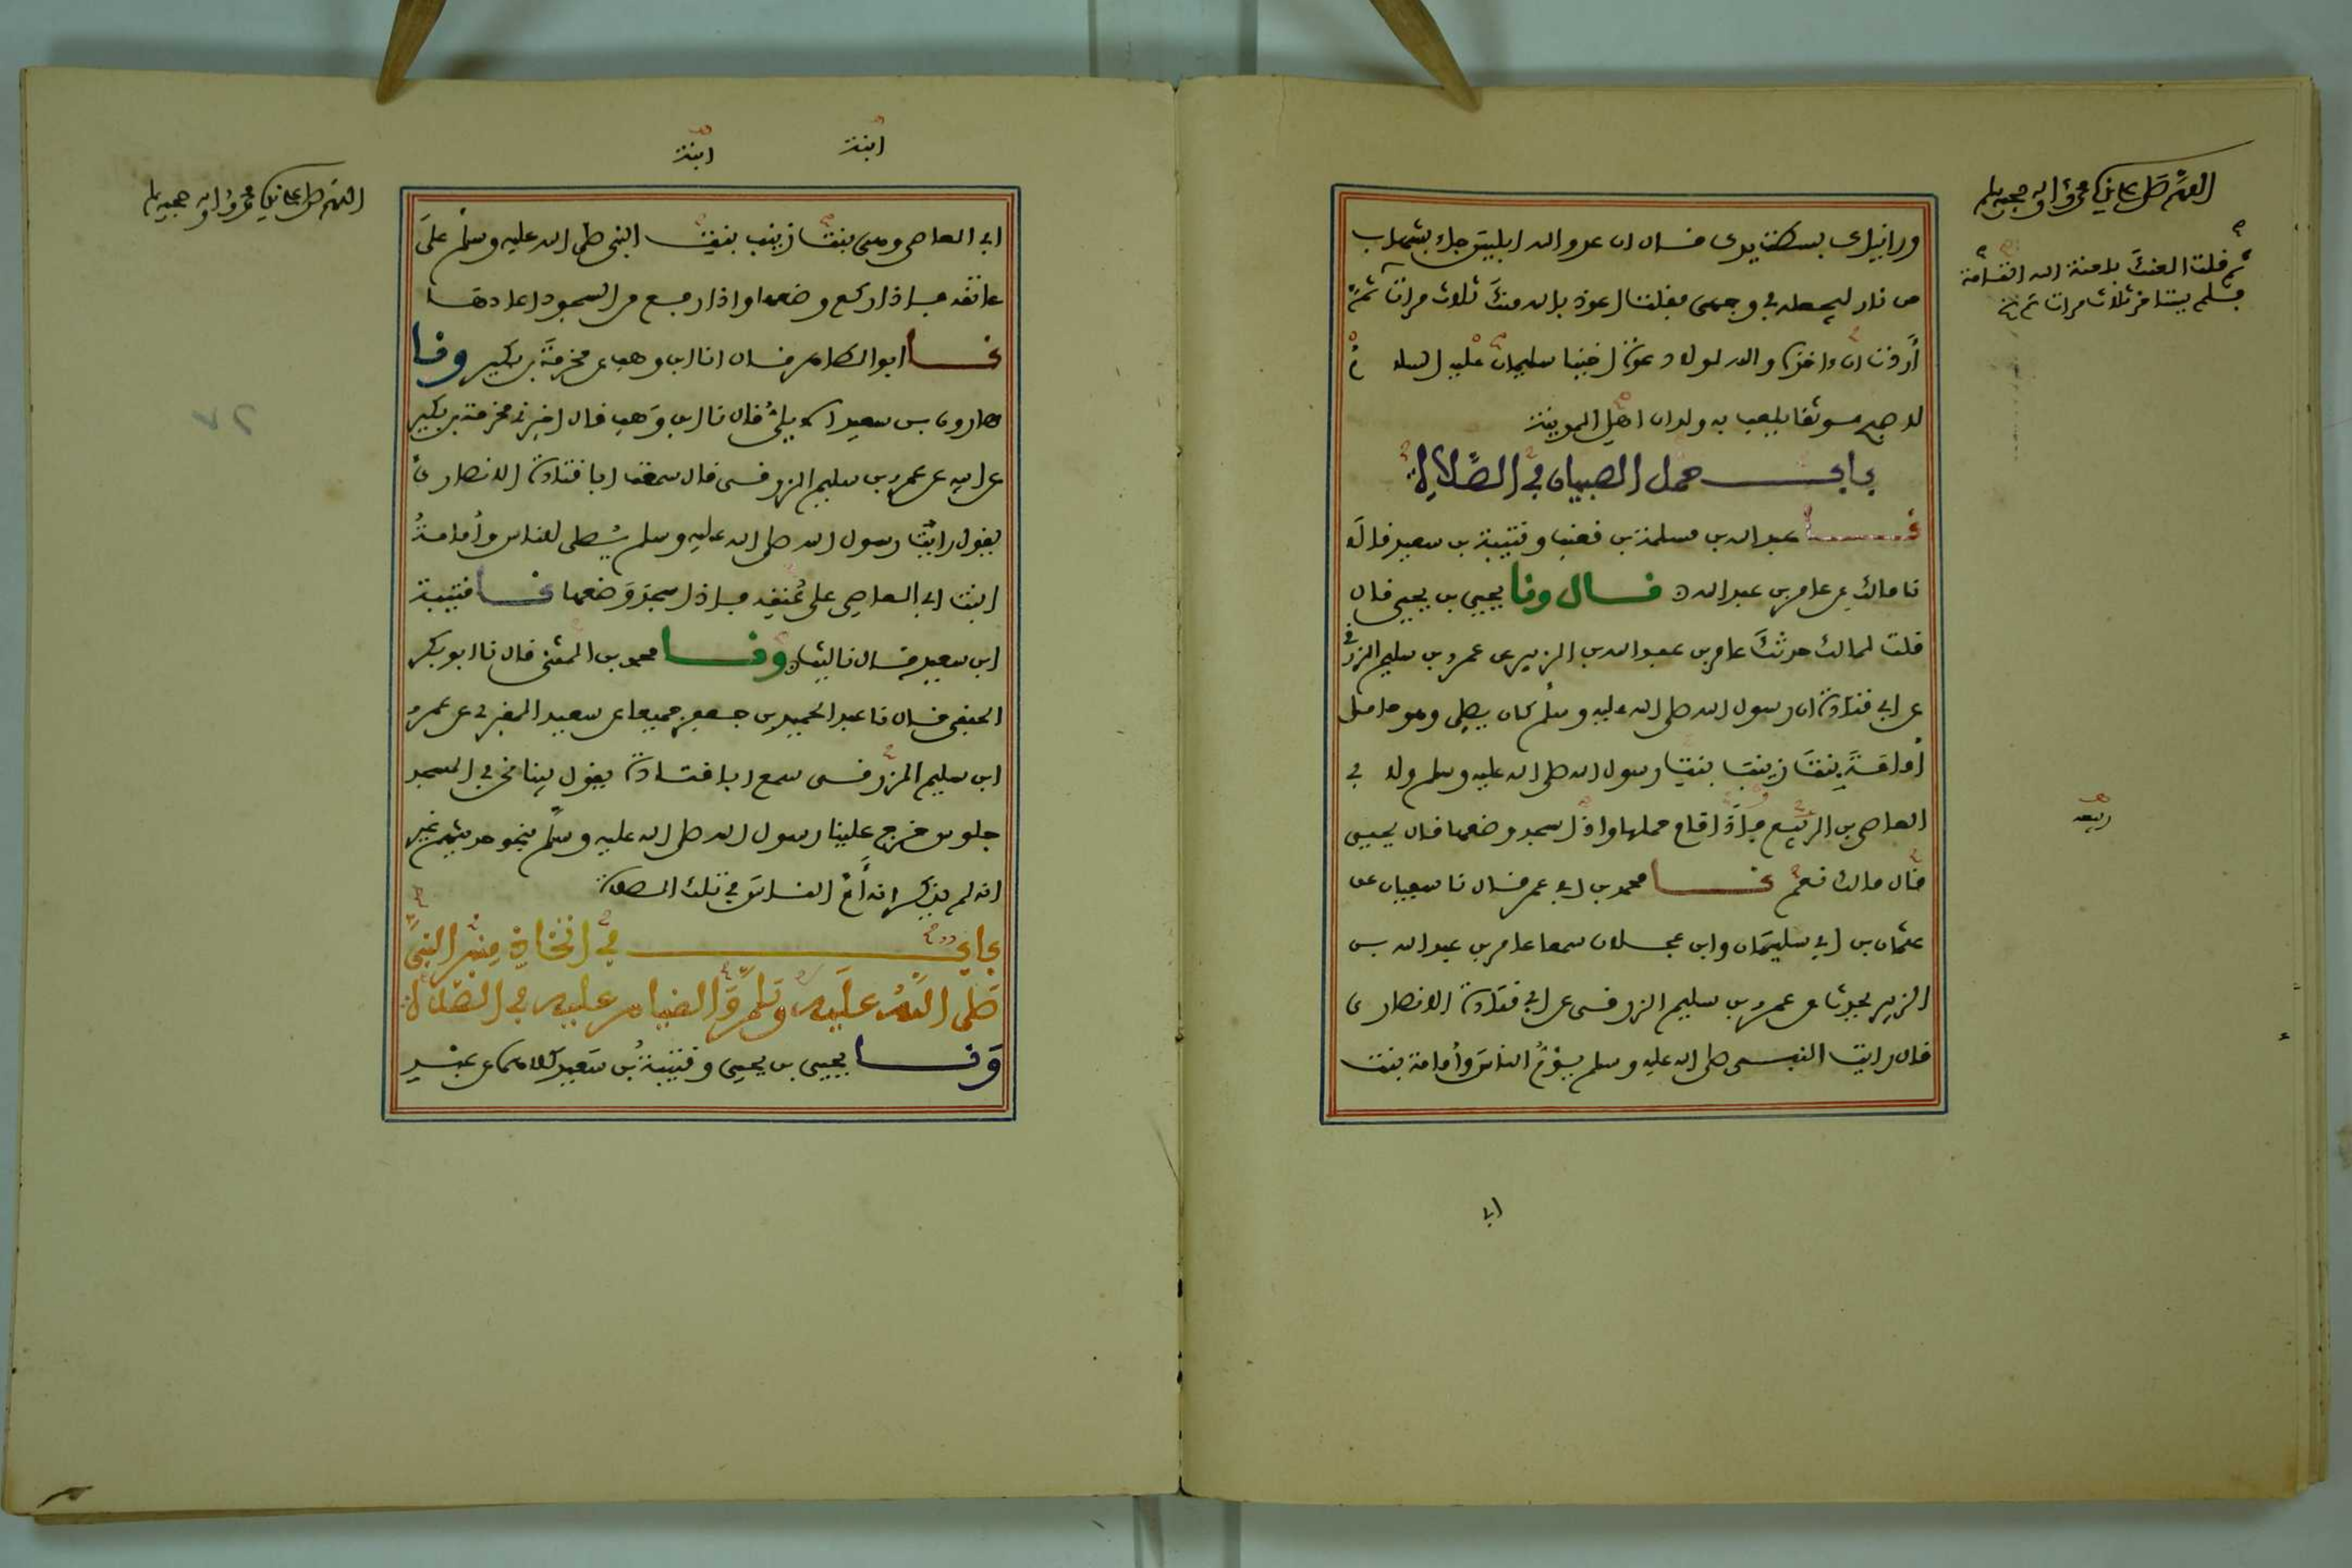 اللهم صل على سيدنا محمد وآله وصحبه وسلم
ورأيناك بسطت يدك فقال ان عدو الله ابليس جاء بشهاب
من نار ليجعله في وجهي فقلت اعوذ بالله منك ثلاث مرات ثم
ثم قلت العنك بلعنة الله التامة
فلم يستاخر ثلاث مرات ثم
أردت ان اخذه والله لولا دعوة اخينا سليمان عليه السلام
لاصبح موثقا يلعب به ولدان اهل المدينة
باب حمل الصبيان في الصلاة
نا عبد الله بن مسلمة بن قعنب وقتيبة بن سعيد قالا
نا مالك عن عامر بن عبد الله ح قال ونا يحيى بن يحيى قال
قلت لمالك حدثك عامر بن عبد الله بن الزبير عن عمرو بن سليم الزرقي
عن ابي قتادة ان رسول الله صلى الله عليه وسلم كان يصلي وهو حامل
أمامة بنت زينب بنت رسول الله صلى الله عليه وسلم ولابي
العاصي بن الربيع فإذا قام حملها واذا سجد وضعها قال يحيى
ربيعه
قال مالك نعم نا محمد بن ابي عمر قال نا سفيان عن
عثمان بن ابي سليمان وابن عجلان سمعا عامر بن عبد الله بن
الزبير يحدث عن عمرو بن سليم الزرقي عن ابي قتادة الانصاري
قال رايت النبي صلى الله عليه وسلم يؤم الناس وأمامة بنت
ابي
ابنة
ابنة
اللهم صل على سيدنا محمد وآله وصحبه وسلم
ابي العاصي وهي بنت زينب بنت النبي صلى الله عليه وسلم على
عاتقه فاذا ركع وضعها واذا رفع من السجود اعادها
نا ابو الطاهر قال انا ابن وهب عن مخرمة بن بكير ونا
هارون بن سعيد الايلي قال نا ابن وهب قال اخبرني مخرمة بن بكير
عن ابيه عن عمرو بن سليم الزرقي قال سمعت ابا قتادة الانصاري
يقول رايت رسول الله صلى الله عليه وسلم يصلي للناس وأمامة
ابنت ابي العاصي على عنقه فاذا سجد وضعها نا قتيبة
ابن سعيد قال نا ليث ونا محمد بن المثنى قال نا ابو بكر
الحنفي قال نا عبد الحميد بن جعفر جميعا عن سعيد المقبري عن عمرو
ابن سليم الزرقي سمع ابا قتادة يقول بينا نحن في المسجد
جلوس خرج علينا رسول الله صلى الله عليه وسلم بنحو حديثهم غير
انه لم يذكر انه أم الناس في تلك الصلاة
باب في اتخاذ منبر النبي
صلى الله عليه وسلم والقيام عليه في الصلاة
ونا يحيى بن يحيى وقتيبة بن سعيد كلاهما عن عبد